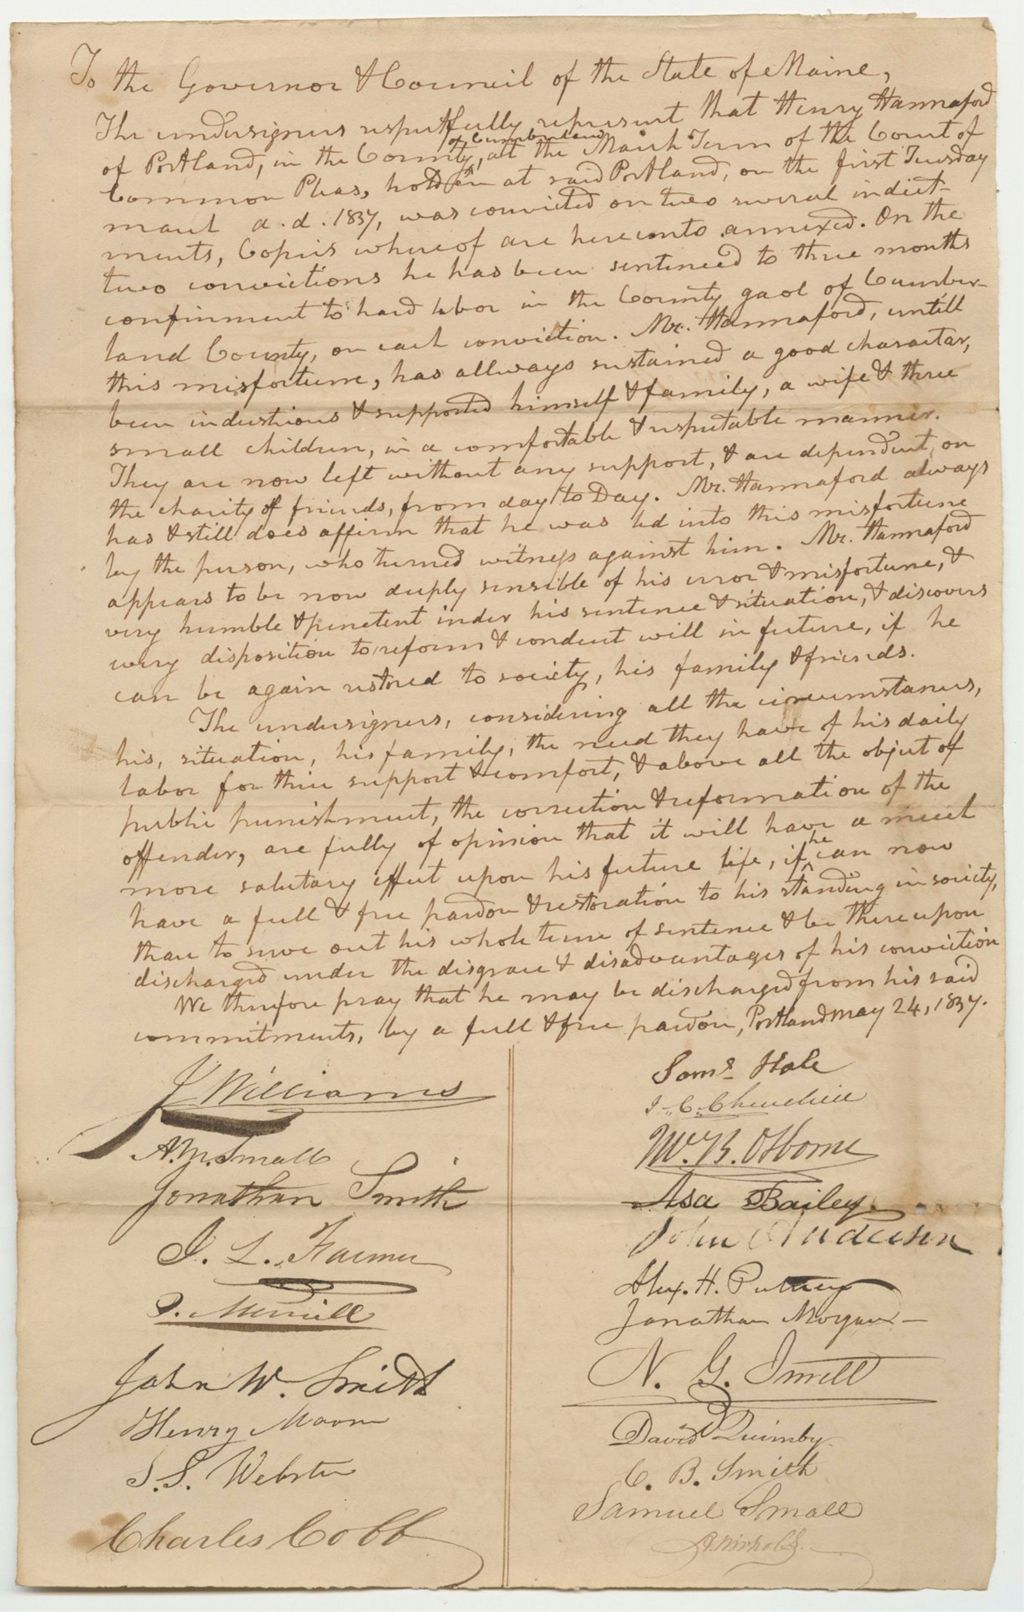 To the Governor & Council of the State of Maine,
The undersigners respectfully represent that Henry Hannaford
of Portland, in the County of Cumberland, at the March Term of the Court of
Common Pleas, holden at said Portland, on the first Tuesday
march a.d. 1837, was convicted on two several indict-
ments, Copies whereof are hereunto annexed. On the
two convictions he has been sentenced to three months
confinment to hard labor in the County gaol of Cumber-
land County, on each conviction. Mr. Hannaford, untill
this misfortune, has allways sustained a good charactar,
been industrious & supported himself & family, a wife & three
small children, in a comfortable & respectable manner.
They are now left without any support, & are dependent on
the charity of friends, from day to Day. Mr. Hannaford always
has & still does affirm that he was led into this misfortune
by the person, who turned witness against him. Mr. Hannaford
appears to be now deeply sensible of his error & misfortune, &
very humble & penetent under his sentence & situation, & discovers
every disposition to reform & conduct will in future, if he
can be again restored to society, his family & friends.
The undersigners, considering all the circumstances,
his, situation, his family, the need they have of his daily
labor for thier support & comfort, & above all the object of
public punishment, the correction & reformation of the
offender, are fully of opinion that it will have a much
more salutary effect upon his future life, if he can now
have a full & free pardon & restoration to his standing in society,
than to serve out his whole time of sentence & be thereupon
discharged under the disgrace & disadvantages of his conviction
We therefore pray that he may be discharged from his said
commitments, by a full & free pardon, Portland May 24, 1837.
J Williams
A. M. Small
Jonathan Smith
J. L. Farmer
J. Merrill
John W. Smith
Henry Moore
S. S. Webster
Charles Cobb
Saml Hale
J. C. Churchill
Wm. B. Osborne
Asa Bailey
John Anderson
Alex. H. Putney
Jonathan Morgan
N. G.
David Quimby
C. B. Smith
Samuel Small
Nichols